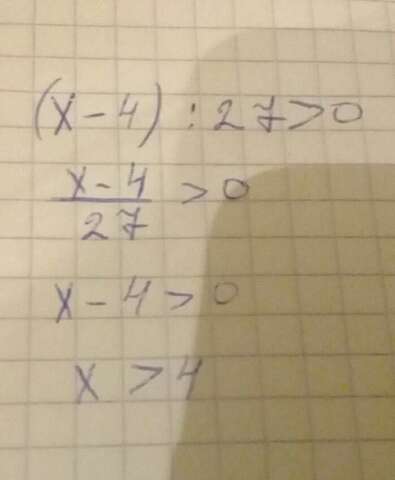 (x-4) : 27 > 0
x-4/27 > 0
x - 4 > 0
x > 4